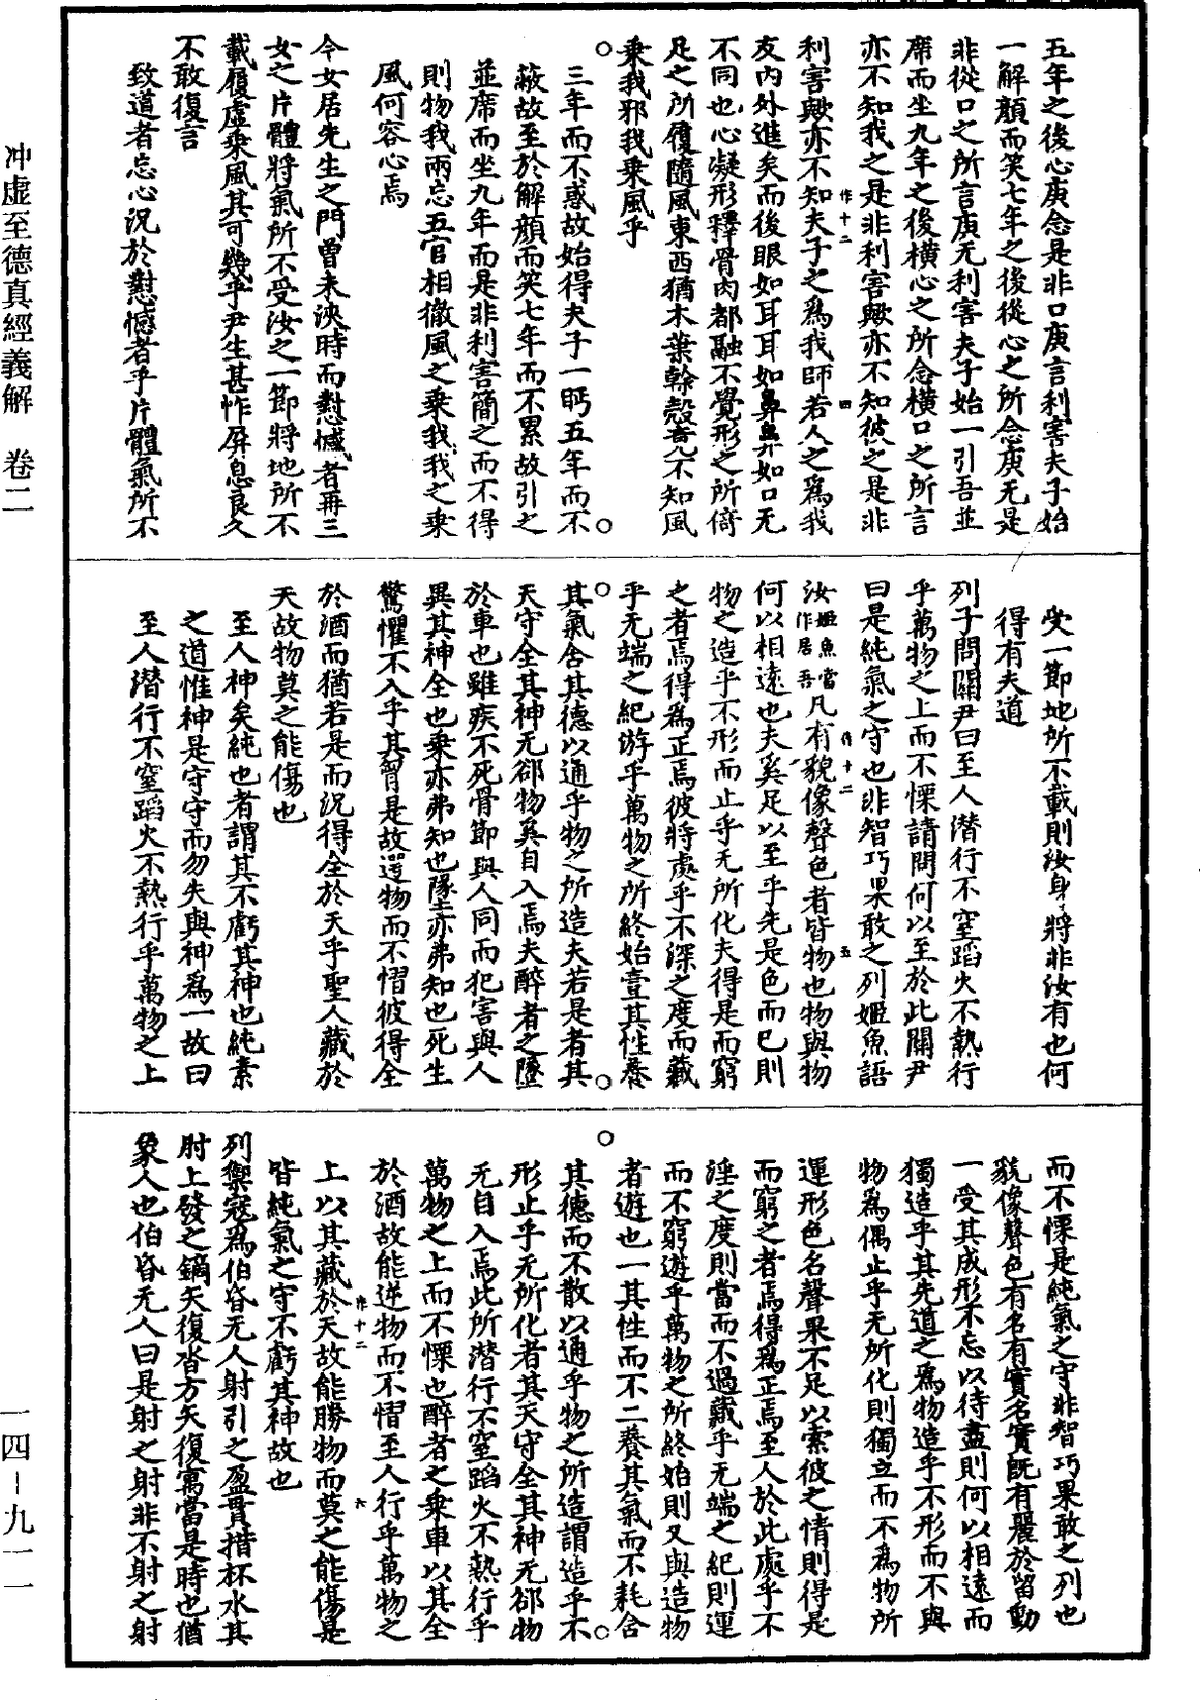 五年之後心庚念是非口庚言利害夫子始
一解顏而笑七年之後從心之所念庚无是
非從口之所言庚无利害夫子始一引吾並
席而坐九年之後橫心之所念橫口之所言
亦不知我之是非利害歟亦不知彼之是非
利害歟亦不知夫子之為我師若人之為我
友內外進矣而後眼如耳耳如鼻鼻如口无
不同也心凝形釋骨肉都融不覺形之所倚
足之所履隨風東西猶木葉幹殼竟不知風
乘我邪我乘風乎
三年而不惑故始得夫子一眄五年而不
蔽故至於解顏而笑七年而不累故引之
並席而坐九年而是非利害簡之而不得
則物我兩忘五官相徹風之乘我我之乘
風何容心焉
今女居先生之門曾未浹時而懟憾者再三
女之片體將氣所不受汝之一節將地所不
載履虛乘風其可幾乎尹生甚怍屏息良久
不敢復言
致道者忘心況於懟憾者乎片體氣所不
受一節地所不載則汝身將非汝有也何
得有夫道
列子問關尹曰至人潛行不窒蹈火不熱行
乎萬物之上而不慄請問何以至於此關尹
曰是純氣之守也非智巧果敢之列姬魚語
汝姬魚當作居吾凡有貌像聲色者皆物也物與物
何以相遠也夫奚足以至乎先是色而已則
物之造乎不形而止乎无所化夫得是而窮
之者焉得為正焉彼將處乎不深之度而藏
乎无端之紀游乎萬物之所終始壹其性養
其氣含其德以通乎物之所造夫若是者其
天守全其神无郤物奚自入焉夫醉者之墜
於車也雖疾不死骨節與人同而犯害與人
異其神全也乘亦弗知也墜亦弗知也死生
驚懼不入乎其胷是故遻物而不慴彼得全
於酒而猶若是而況得全於天乎聖人藏於
天故物莫之能傷也
至人神矣純也者謂其不虧其神也純素
之道惟神是守守而勿失與神為一故曰
至人潛行不窒蹈火不熱行乎萬物之上
而不慄是純氣之守非智巧果敢之列也
貌像聲色有名有實名實既有麗於留動
一受其成形不忘以待盡則何以相遠而
獨造乎其先道之為物造乎不形而不與
物為偶止乎无所化則獨立而不為物所
運形色名聲果不足以索彼之情則得是
而窮之者焉得為正焉至人於此處乎不
淫之度則當而不過藏乎无端之紀則運
而不窮遊乎萬物之所終始則又與造物
者遊也一其性而不二養其氣而不耗含
其德而不散以通乎物之所造謂造乎不
形止乎无所化者其天守全其神无郤物
无自入焉此所潛行不窒蹈火不熱行乎
萬物之上而不慄也醉者之乘車以其全
於酒故能逆物而不慴至人行乎萬物之
上以其藏於天故能勝物而莫之能傷是
皆純氣之守不虧其神故也
列禦寇為伯昏无人射引之盈貫措杯水其
肘上發之鏑矢復沓方矢復寓當是時也猶
象人也伯昏无人曰是射之射非不射之射
冲虛至德真經義解 卷二
一四－九一一
作十二 四
作十二 五
作十二 六